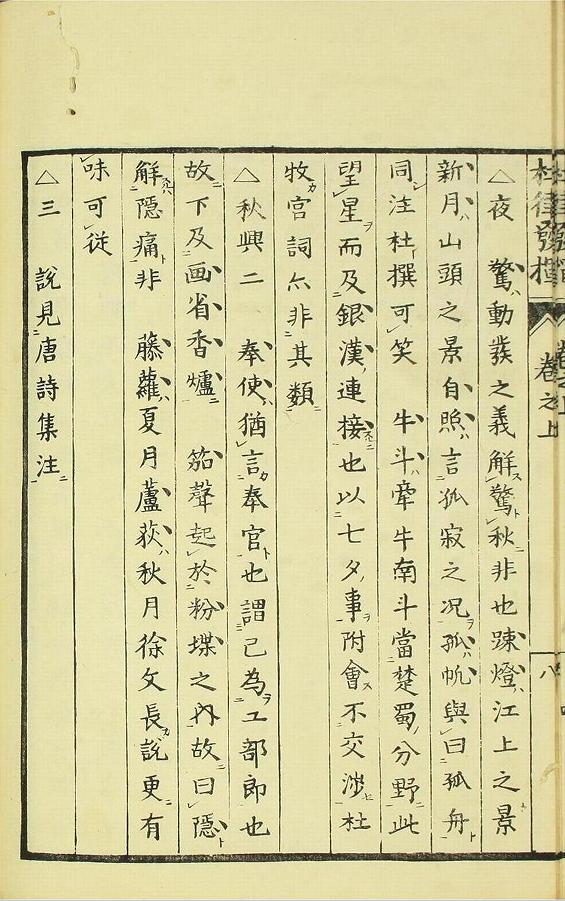 杜律發揮 卷之上 八
△夜 驚動蕟之義解驚秋非也踈燈江上之景
新月山頭之景自照言孤寂之况孤帆與曰孤舟
同注杜撰可笑 牛斗牽牛南斗當楚蜀分野此
望星而及銀漢連接也以七夕事附會不交渉杜
牧宮詞亦非其類
△秋興二 奉使猶言奉官也謂己為工部郎也
故下及画省香爐 笳聲起於粉堞之內故曰隱
解隱痛非 藤蘿夏月蘆荻秋月徐文長說更有
味可從
△三 說見唐詩集注